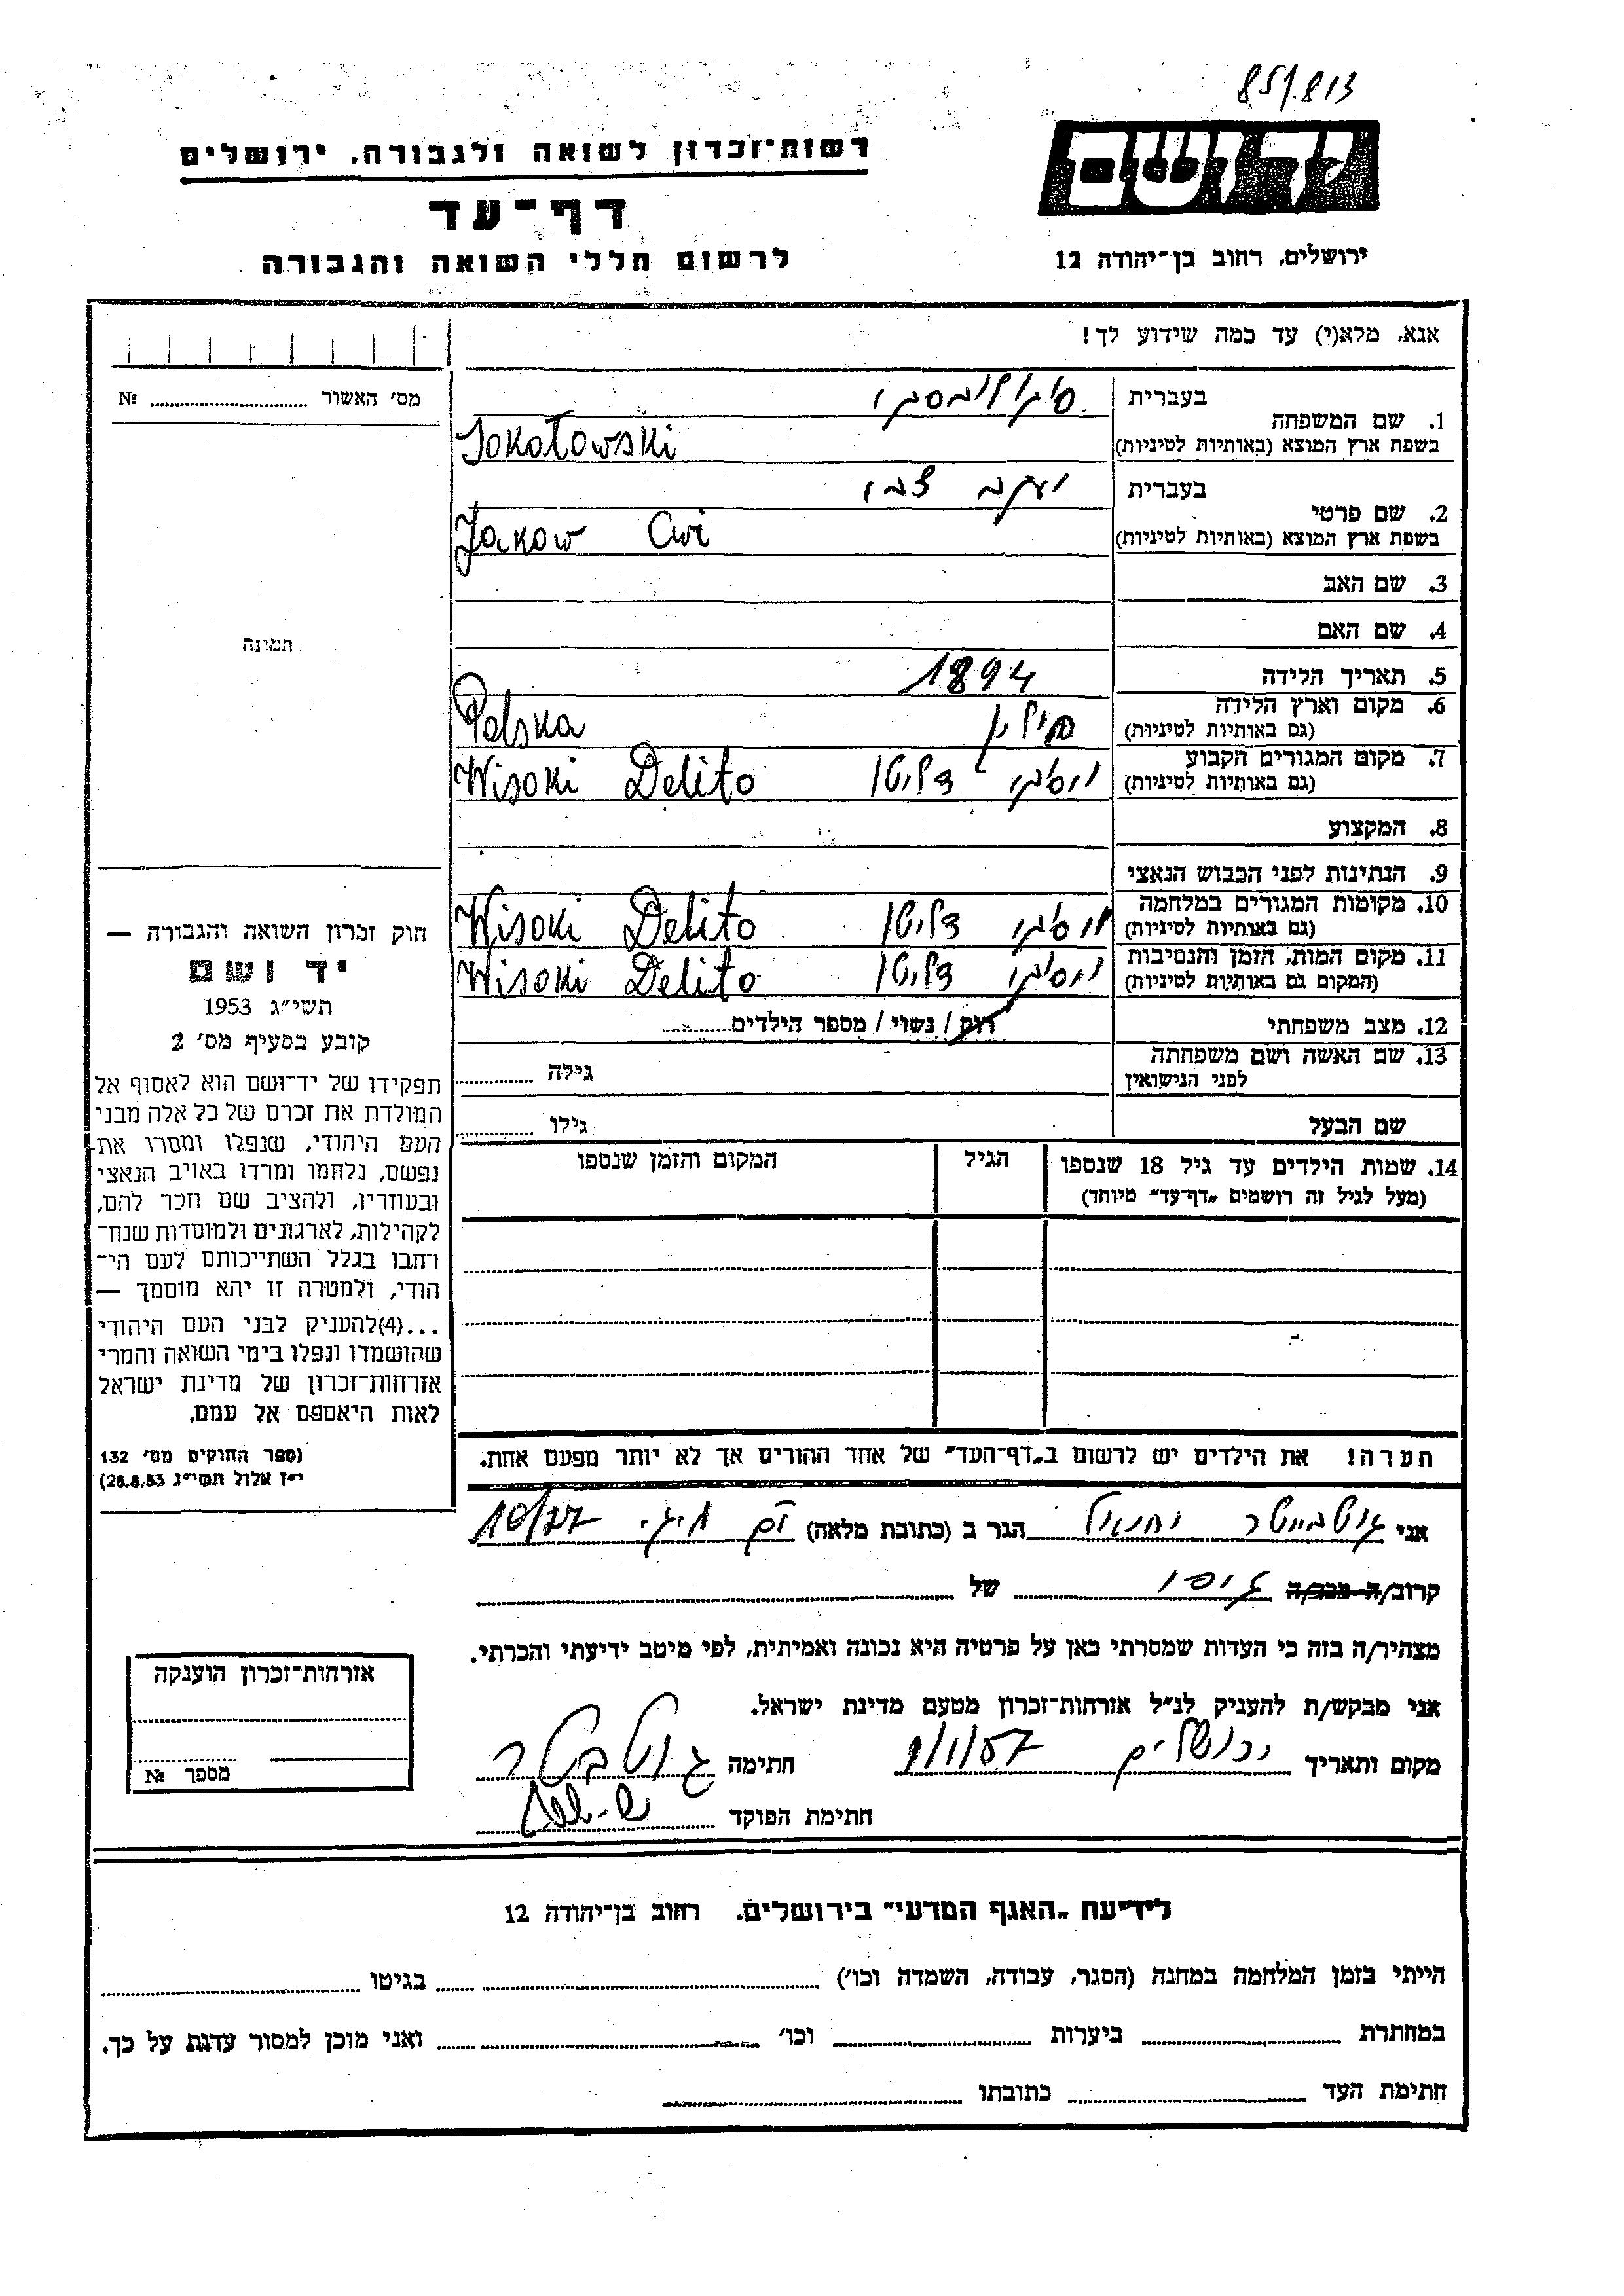 851.813
יד ושם
רשות־זכרון לשואה ולגבורה, ירושלים
דף־עד
לרשום חללי השואה והגבורה
ירושלים, רחוב בן־יהודה 12
אנא, מלא(י) עד כמה שידוע לך!
מס' האשור № 
1. שם המשפחה
בעברית
בשפת ארץ המוצא (באותיות לטיניות) Sokołowski
2. שם פרטי
בעברית יעקב צבי
בשפת ארץ המוצא (באותיות לטיניות) Jakow Cwi
3. שם האב
4. שם האם
5. תאריך הלידה 1894
6. מקום וארץ הלידה
(גם באותיות לטיניות) פולין Polska
7. מקום המגורים הקבוע
(גם באותיות לטיניות) ויסוקי דליטו Wisoki Delito
8. המקצוע
9. הנתינות לפני הכבוש הנאצי
10. מקומות המגורים במלחמה
(גם באותיות לטיניות) ויסוקי דליטו Wisoki Delito
11. מקום המות, הזמן והנסיבות
(המקום גם באותיות לטיניות) ויסוקי דליטו Wisoki Delito
12. מצב משפחתי רוק / נשוי / מספר הילדים
13. שם האשה ושם משפחתה
לפני הנישואין גילה
שם הבעל גילו
14. שמות הילדים עד גיל 18 שנספו הגיל המקום והזמן שנספו
(מעל לגיל זה רושמים „דף־עד" מיוחד)
הערה! את הילדים יש לרשום ב„דף־העד" של אחד ההורים אך לא יותר מפעם אחת.
תמונה
חוק זכרון השואה והגבורה —
יד ושם
תשי"ג 1953
קובע בסעיף מס' 2
תפקידו של יד־ושם הוא לאסוף אל
המולדת את זכרם של כל אלה מבני
העם היהודי, שנפלו ומסרו את־
נפשם, נלחמו ומרדו באויב הנאצי
ובעוזריו, ולהציב שם וזכר להם,
לקהילות, לארגונים ולמוסדות שנח־
רחבו בגלל השתייכותם לעם הי־
הודי, ולמטרה זו יהא מוסמך —
...(4) להעניק לבני העם היהודי
שהושמדו ונפלו בימי השואה והמרי
אזרחות־זכרון של מדינת ישראל
לאות היאספם אל עמם.
(ספר החוקים מס' 132
י"ז אלול תשי"ג 28.8.53)
אני הגר ב (כתובת מלאה) 10/77
קרוב/ה מכר/ה גיסו של
מצהיר/ה בזה כי העדות שמסרתי כאן על פרטיה היא נכונה ואמיתית, לפי מיטב ידיעתי והכרתי.
אני מבקש/ת להעניק לנ"ל אזרחות־זכרון מטעם מדינת ישראל.
מקום ותאריך ירושלים חתימה
חתימת הפוקד
אזרחות־זכרון הוענקה
מספר №
לידיעת „האגף המדעי" בירושלים. רחוב בן־יהודה 12
הייתי בזמן המלחמה במחנה (הסגר, עבודה, השמדה וכו') בגיטו
במחתרת ביערות וכו' ואני מוכן למסור עדות על כך.
חתימת העד כתובתו